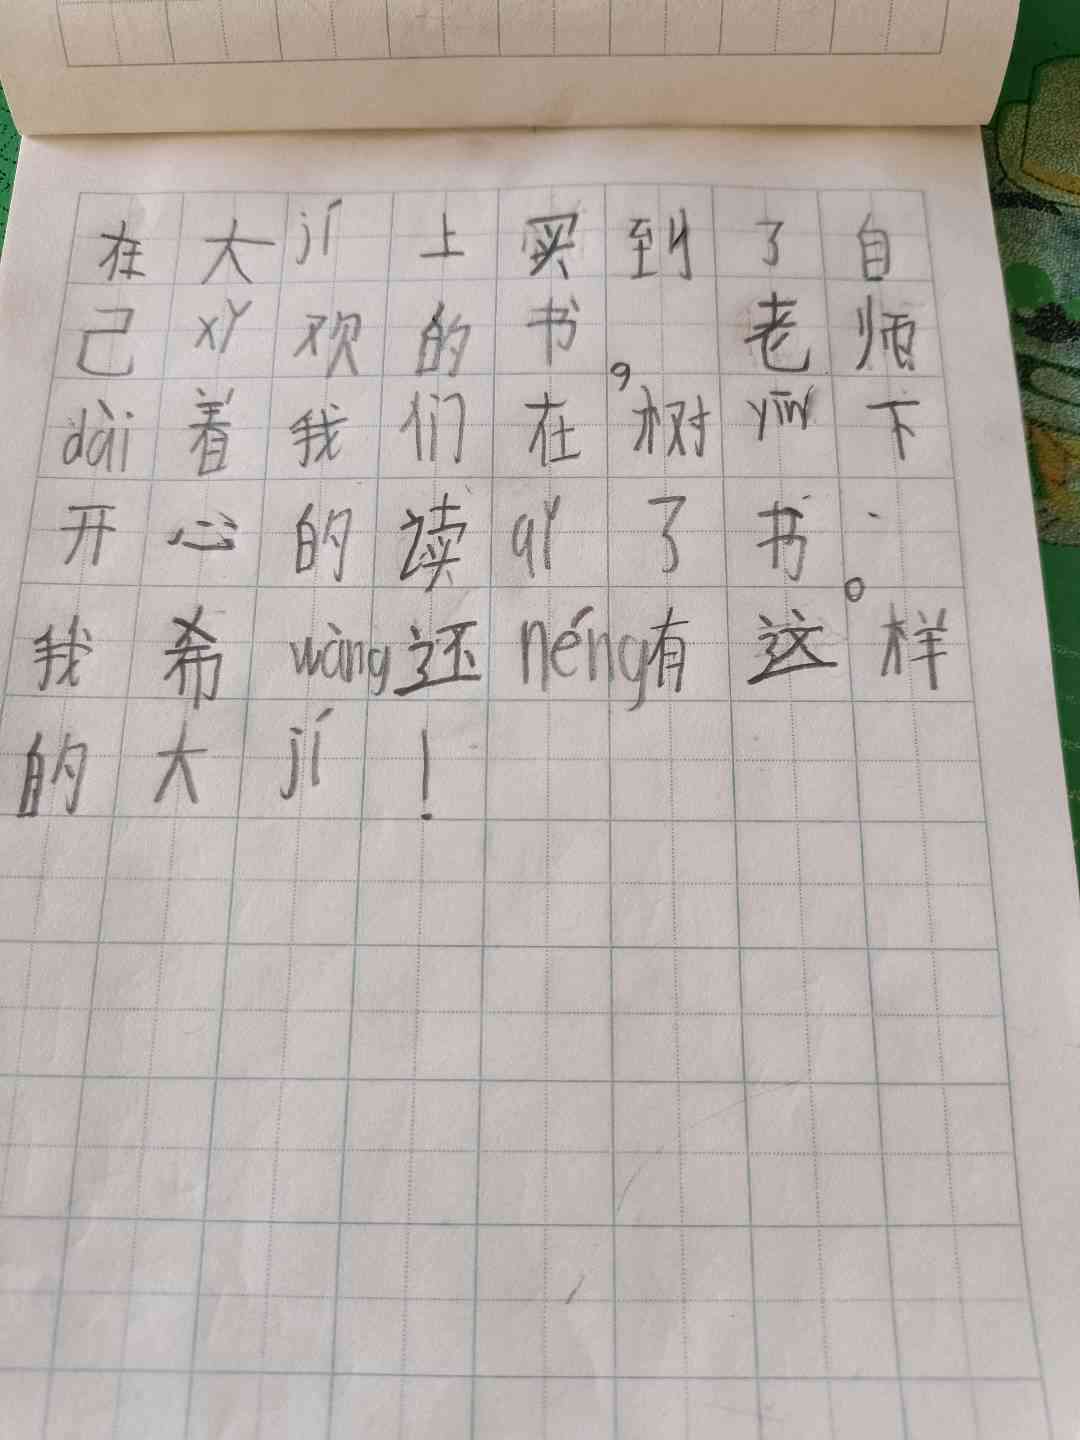 在大jí上买到了自
己xǐ欢的书，老师
dài着我们在树yīn下
开心的读qǐ了书。
我希wàng还néng有这样
的大jí！